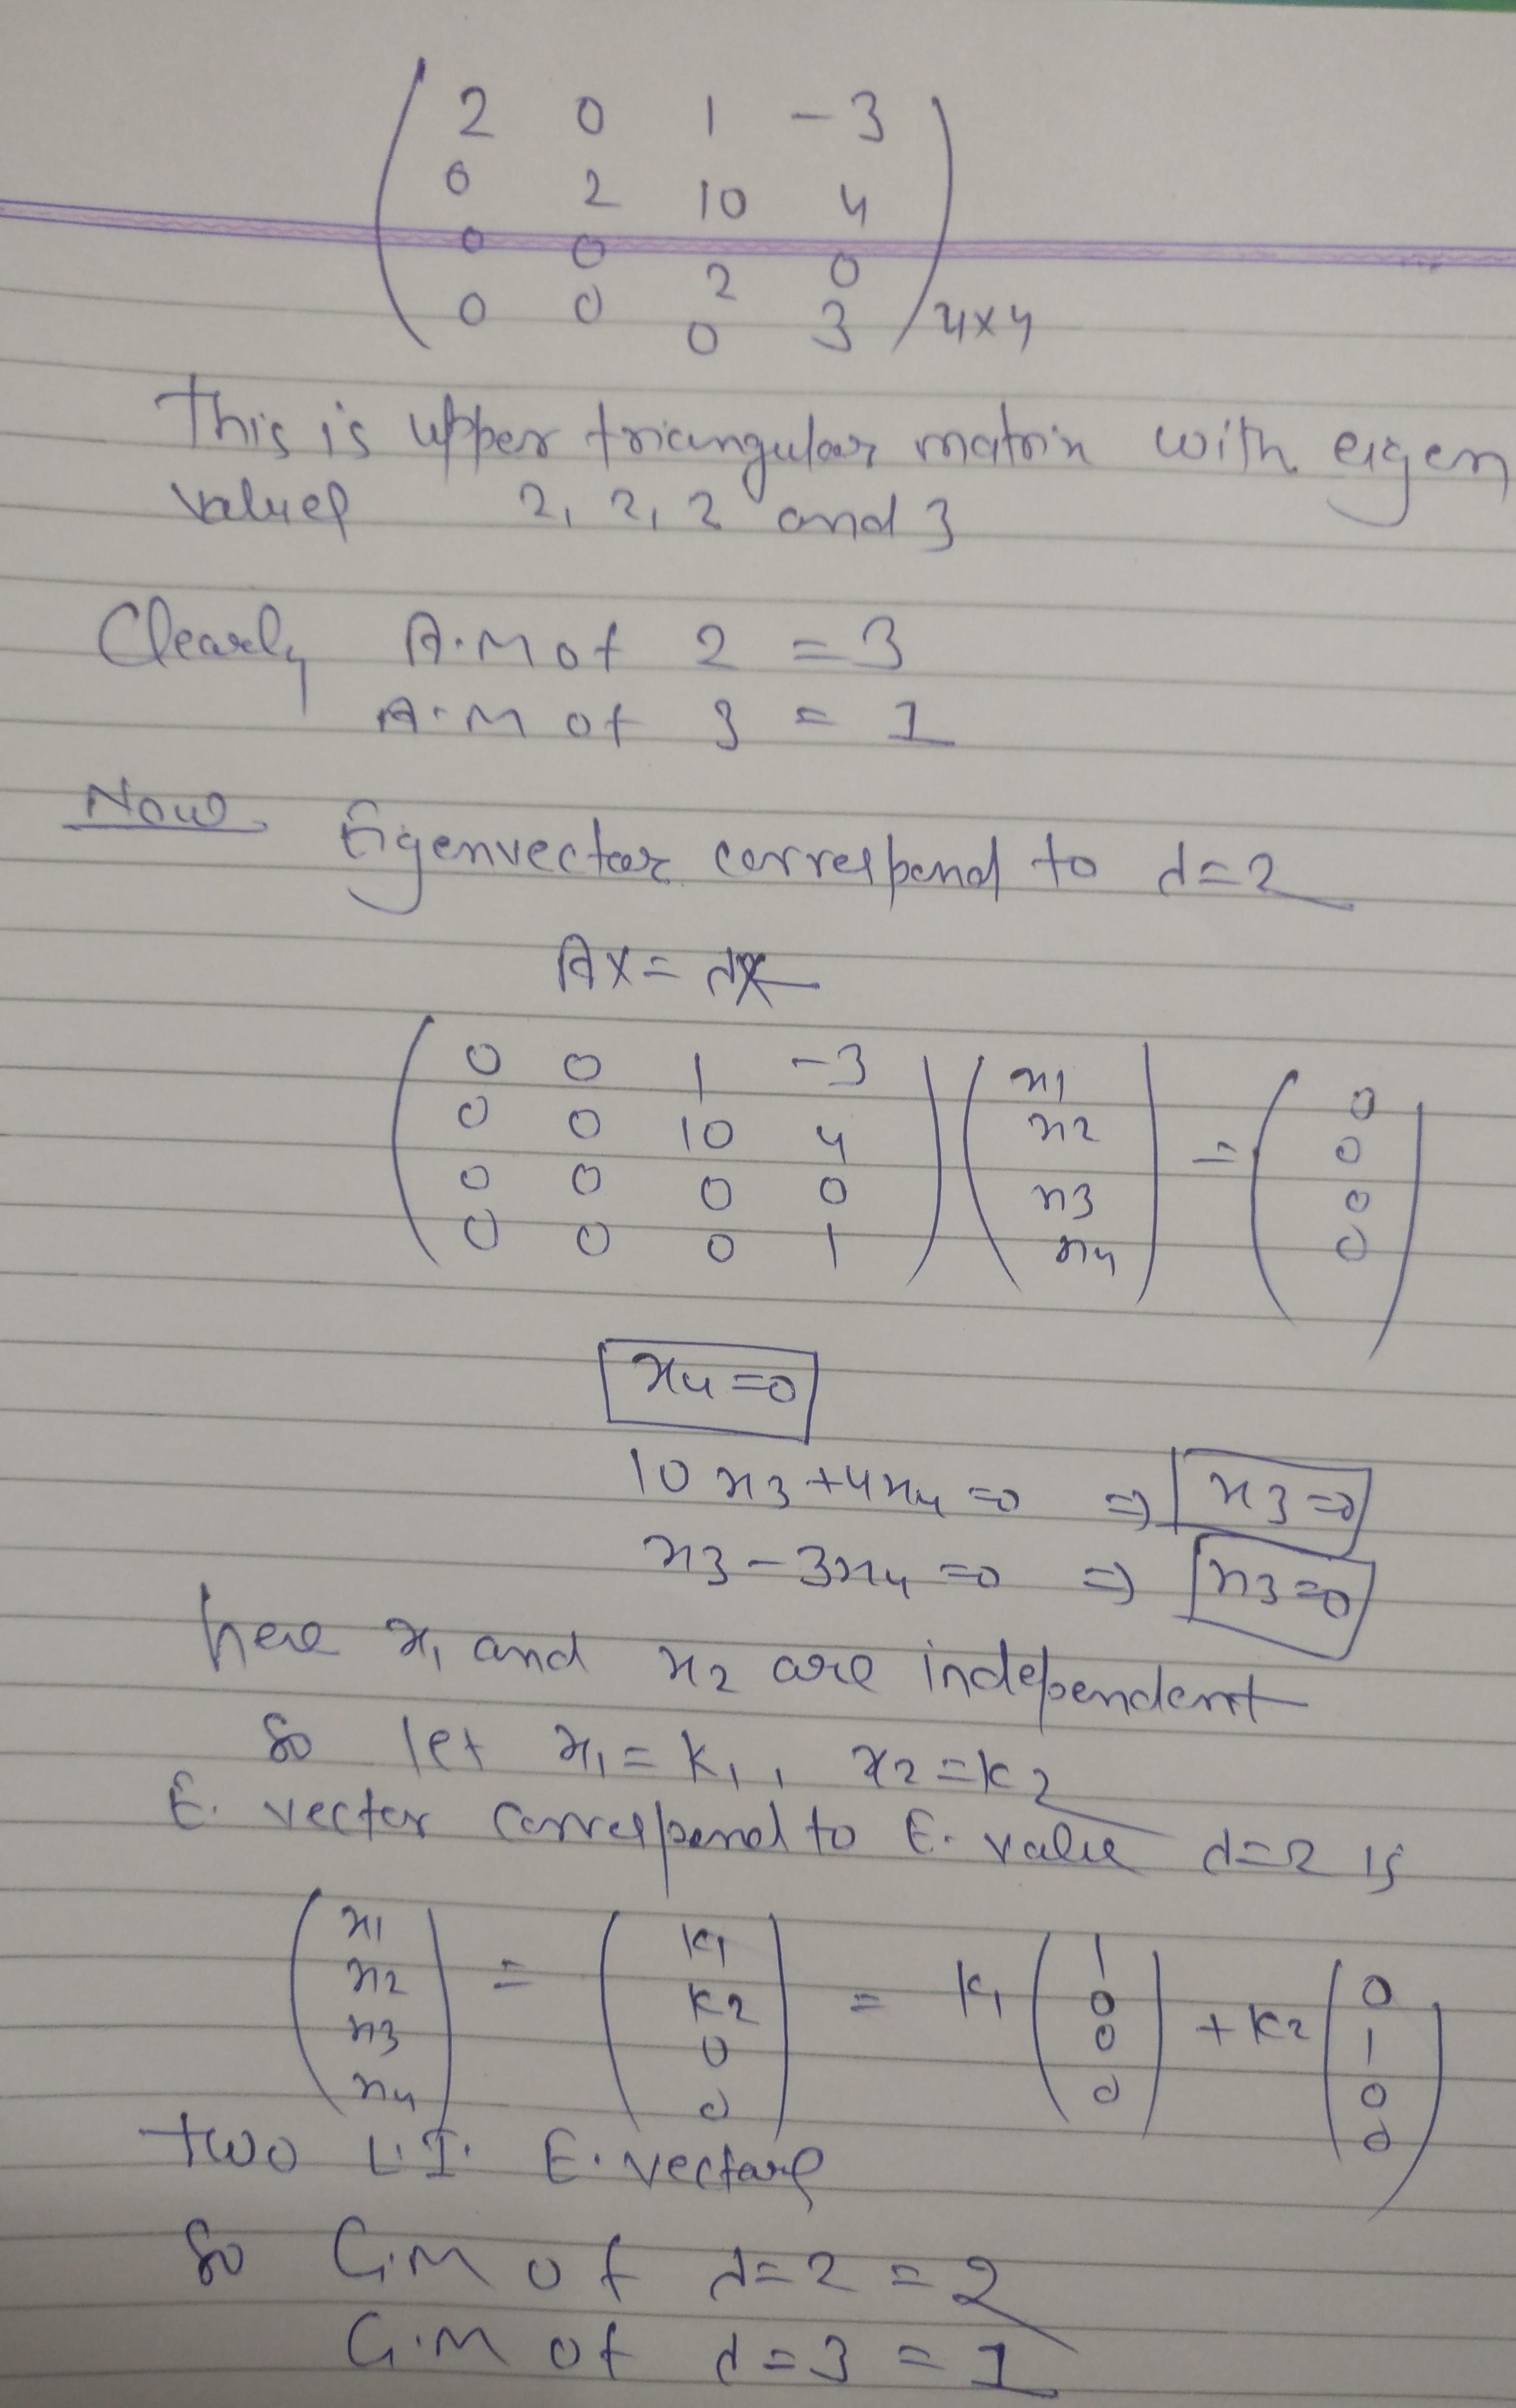 2 0 1 -3
0 2 10 4
0 0 2 0
0 0 0 3 4×4
This is upper triangular matrix with eigen
values 2, 2, 2 and 3
Clearly A.M of 2 = 3
A.M of 3 = 1
Now Eigenvector correspond to λ=2
AX = λX
0 0 1 -3 x1 0
0 0 10 4 x2 = 0
0 0 0 0 x3 0
0 0 0 1 x4 0
x4=0
10x3+4x4=0 ⇒ x3=0
x3-3x4=0 ⇒ x3=0
here x1 and x2 are independent
So let x1=k1, x2=k2
E. vector correspond to E. value λ=2 is
x1 k1 1 0
x2 = k2 = k1 0 +k2 1
x3 0 0 0
x4 0 0 0
two L.I. E. vectors
So G.M of λ=2 = 2
G.M of λ=3 = 1